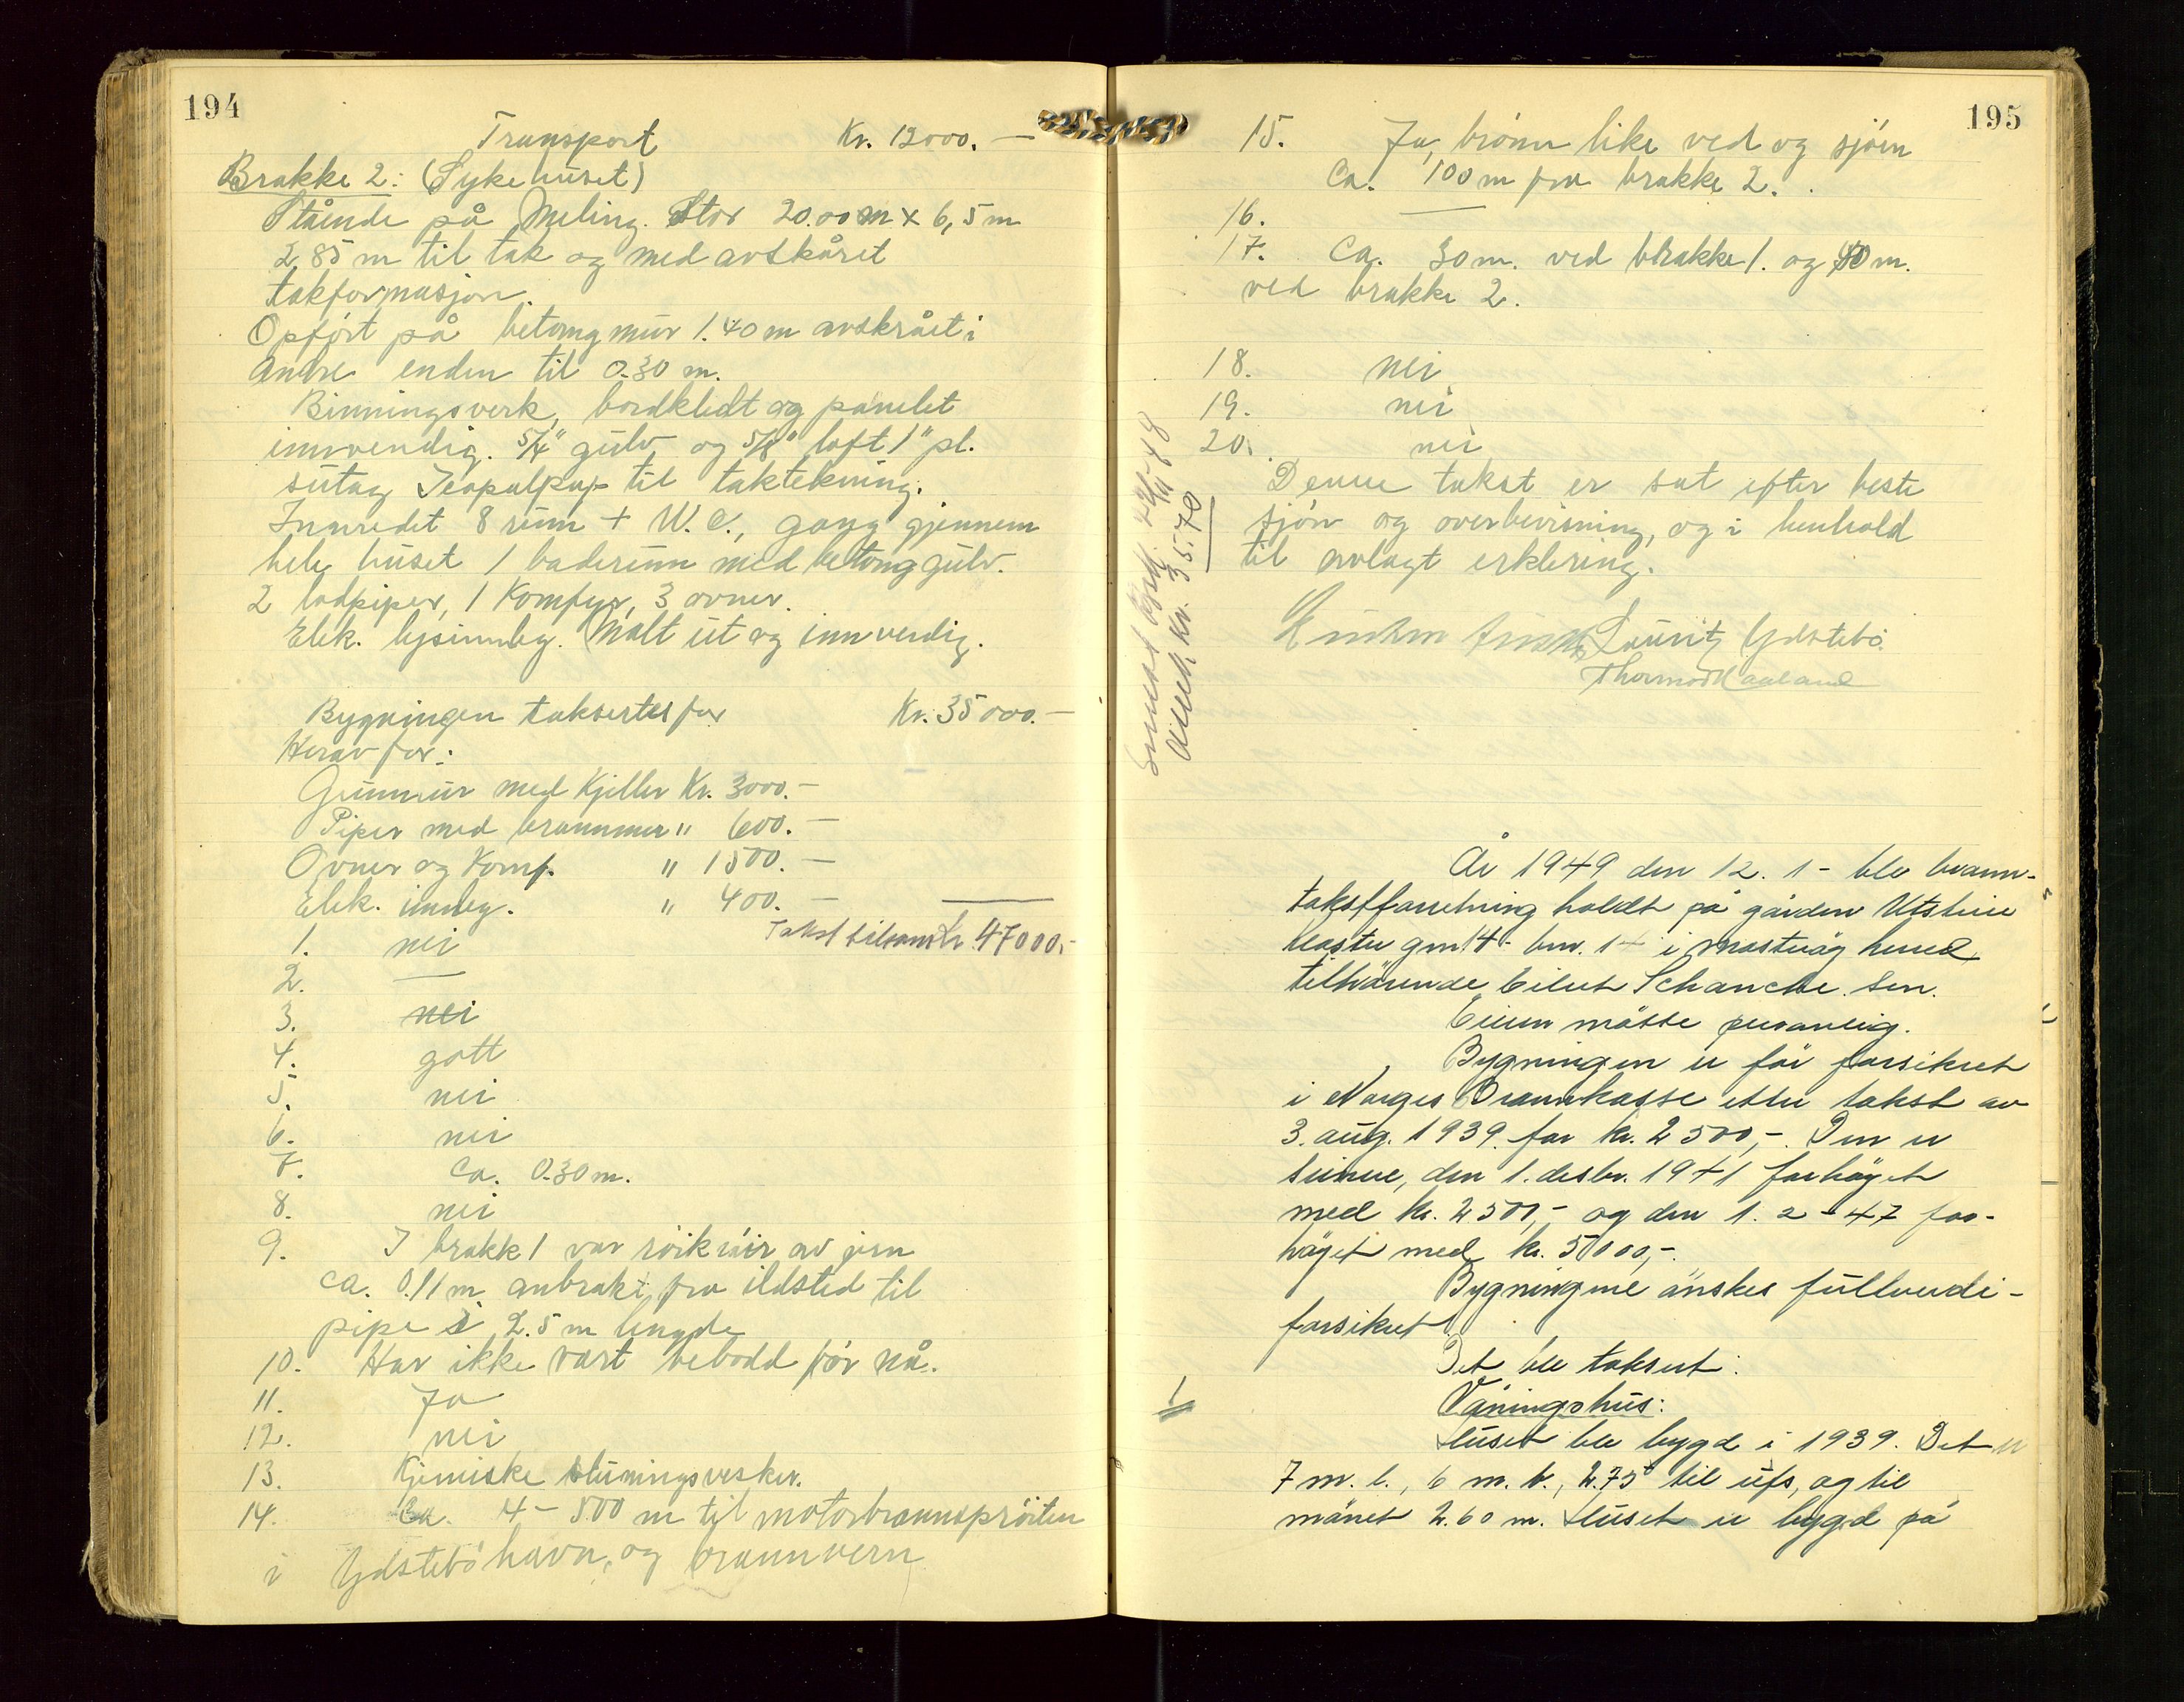 194
Transport Kr. 12000.—
Brakke 2: (Sykehuset)
Stående på Meling. Stor 20.00 m x 6,5 m
2.85 m til tak og med avskåret
takformasjon.
Opført på betongmur 1.40 m avskrået i
andre enden til 0.30 m.
Binningsverk, bordkledt og panelet
innvendig. 5/4" gulv og 5/8" loft 1" pl.
sutag til taktekning.
Innredet 8 rum + W.C., gang gjennem
hele huset 1 baderum med betonggulv.
2 lodpiper, 1 Komfyr, 3 ovner.
Elek. lysinnleg. Malt ut og innvendig.
Bygningen takseres for Kr. 35000.—
Herav for:
Grunnmur med Kjeller Kr. 3000.—
Piper med brannmur " 600.—
Ovner og Komf. " 1500.—
Elek. innleg. " 400.—
1. nei Takst tilsam kr. 47000.-
2. —
3. nei
4. gott
5. nei
6. nei
7. Ca. 0.30 m.
8. nei
9. I brakk 1 var røikrör av jern
ca. 0.11 m anbrakt fra ildsted til
pipe i 2.5 m lengde
10. Har ikke vært bebodd før nå.
11. Ja
12. nei
13. Kjemiske slukningsvesker.
14. Ca. 4 – 500 m til motorbrannsprøiten
i Ydstebö havn, og brannvern
195
15. Ja, brønn like ved og sjøen
Ca. 100 m fra brakke 2.
16. —
17. Ca. 30 m. ved brakke 1. og 40 m.
ved brakke 2.
18. nei
19. nei
20. nei
Denne takst er sat efter beste
sjøn og overbevisning, og i henhold
til avlagt erklering.
Lauritz Ydstebö.
Thormod Haaland
kr. 35.70
År 1949 den 12. 1 – ble brann-
takstforretning holdt på gården Utstein
kloster gnr. 14 - bnr. 1 – i Mosterøy herred
tilhørende Eilert Schanche sen.
Eieren møtte personlig.
Bygningen er før forsikret
i Norges Brannkasse etter takst av
3. aug. 1939 for kr. 2500,-. Den er
senere, den 1. desbr. 1941 forhøyet
med kr. 2500,- og den 1. 2 – 47 for-
høyet med kr. 5000,-.
Bygningene ønskes fullverdi-
forsikret.
Det ble taksert:
1 Våningshus:
Huset ble bygd i 1939. Det er
7 m. l., 6 m. b., 2.75 til ufs, og til
mønet 2.60 m. Huset er bygd på